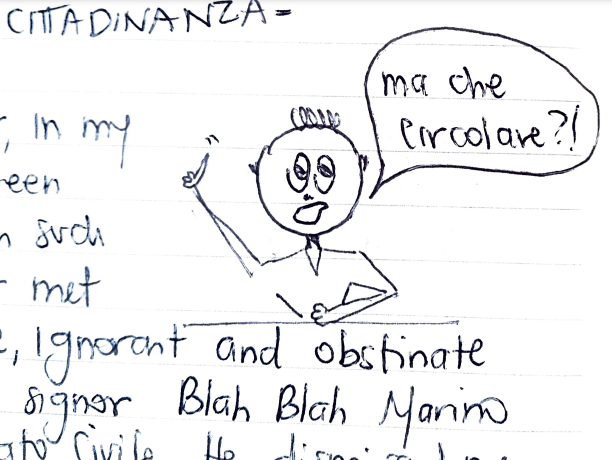 CITTADINANZA =
ma che
circolare?!
, in my
een
such
met
, ignorant and obstinate
signor Blah Blah Marino
ato Civile. He